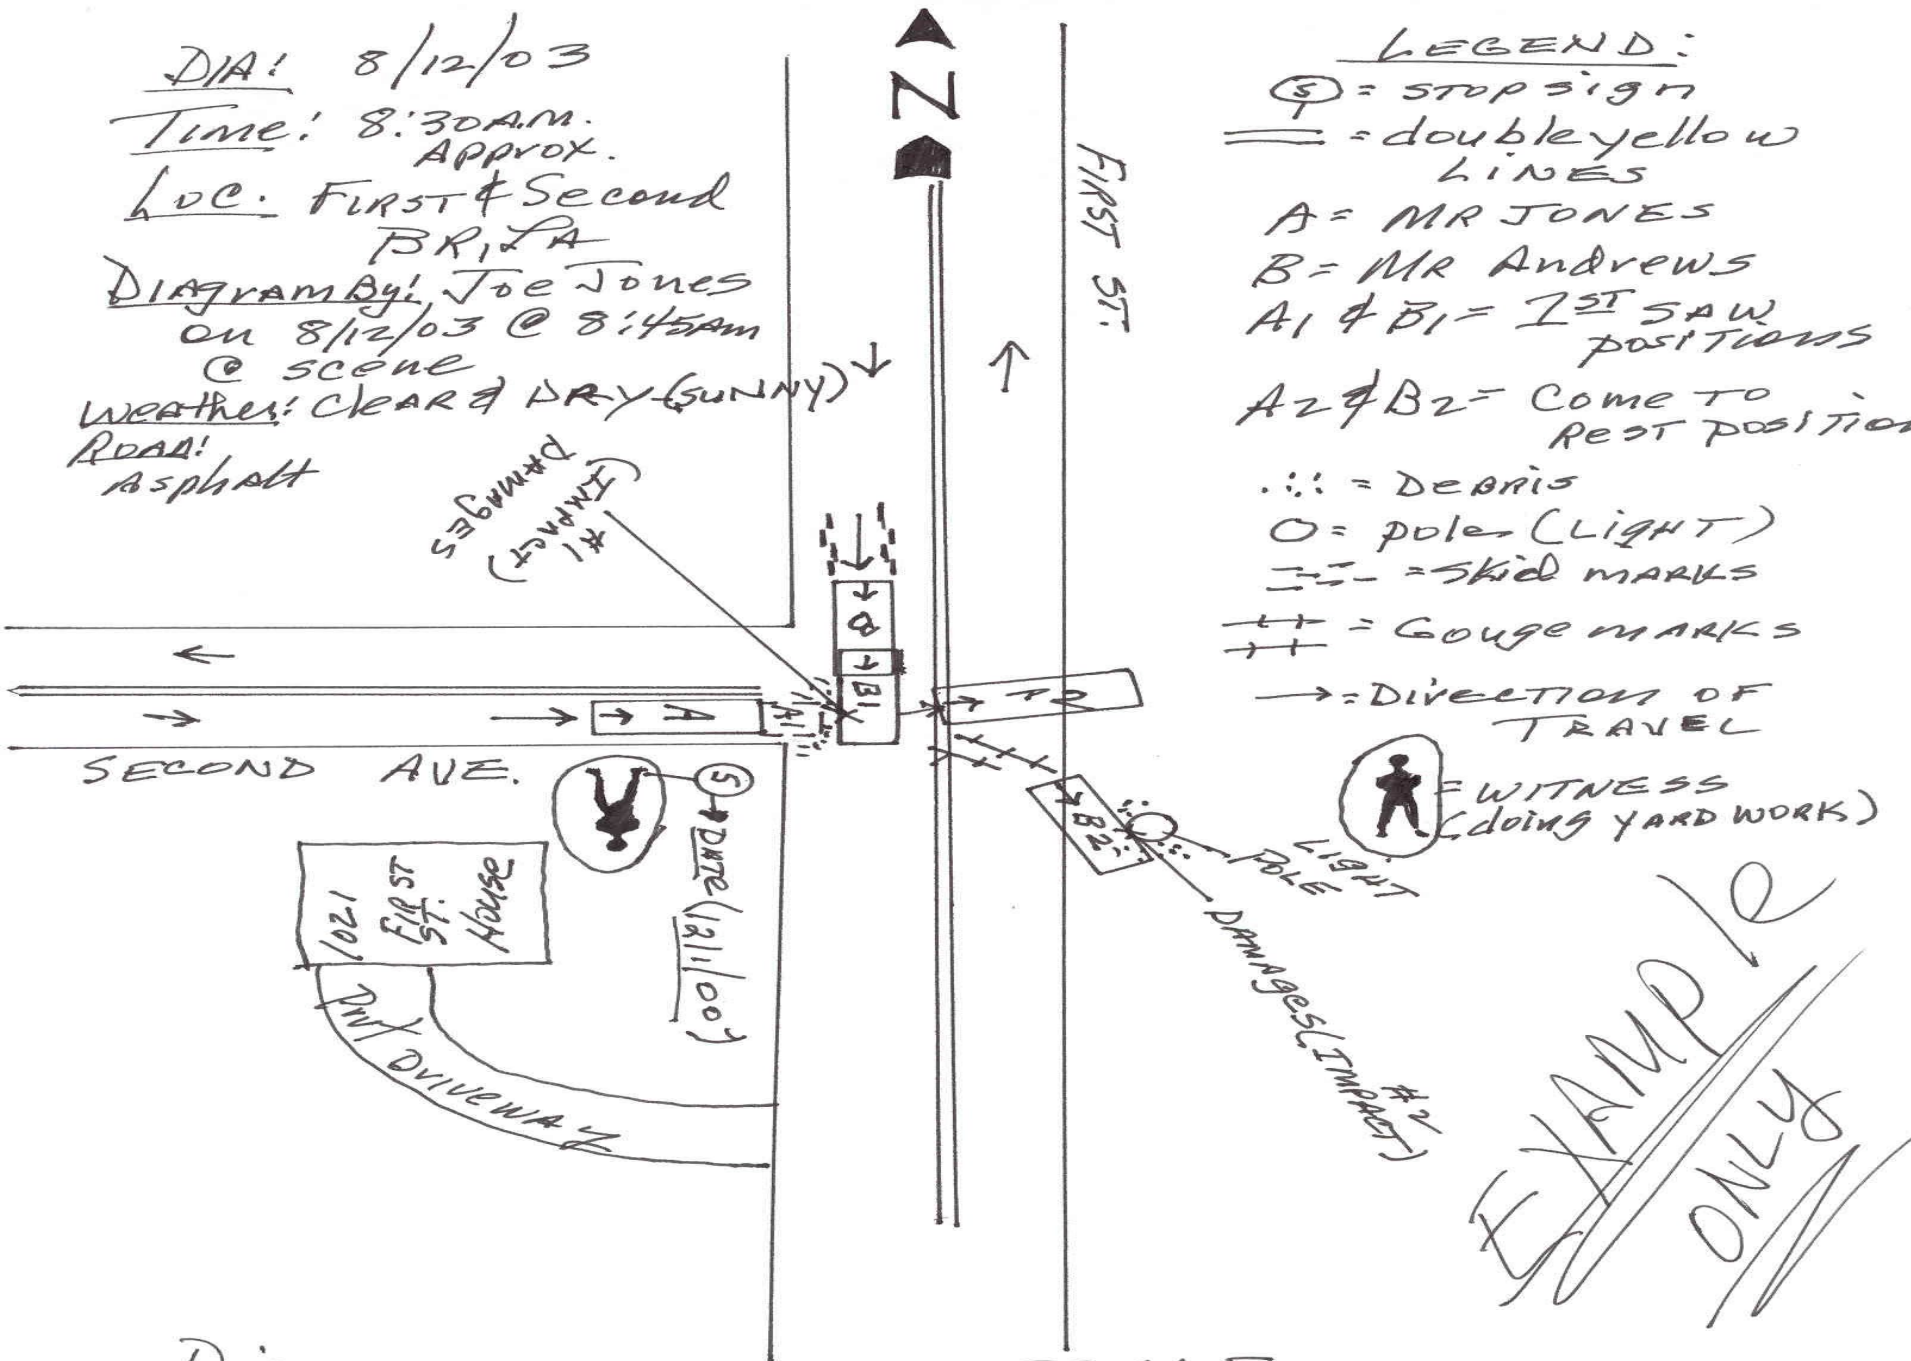 DIA: 8/12/03
Time: 8:30 A.M.
Approx.
Loc. FIRST & Second
BR, LA
Diagram By: Joe Jones
on 8/12/03 @ 8:45am
@ scene
Weather: CleAR & DRY (SUNNY)
ROAD:
Asphalt
N
FIRST ST.
LEGEND:
S = STOP sign
= double yellow
LINES
A = MR JONES
B = MR Andrews
A1 & B1 = 1ST SAW
positions
A2 & B2 = Come TO
ReST position
= DeBris
O = poles (LIGHT)
= Skid MARKS
= Gouge MARKS
→ = Direction OF
TRAVEL
= WITNESS
(doing YARD WORK)
#1
(IMPACT)
DAMAGES
B
B1
A
A1
A2
B2
SECOND AVE.
S
DATE (12/1/00)
1021
FIRST
ST.
House
DRIVEWAY
LIGHT
POLE
#2
DAMAGES (IMPACT)
EXAMPLE
ONLY